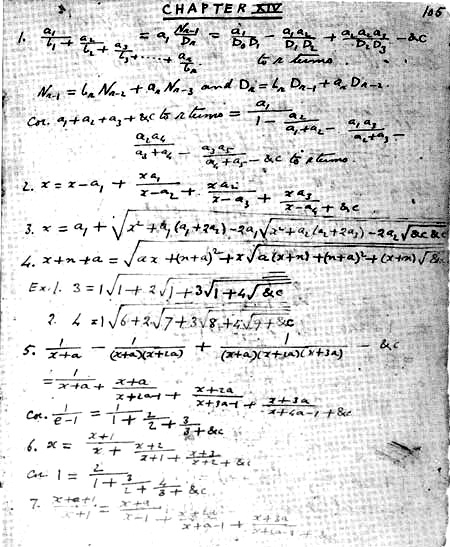 CHAPTER XIV 105
1. a₁/b₁ + a₂/b₂ + a₃/b₃ + ⋯ + aₙ/bₙ = a₁ Nₙ₋₁/Dₙ = a₁/D₀D₁ − a₁a₂/D₁D₂ + a₁a₂a₃/D₂D₃ − &c
to n terms.
Nₙ₋₁ = bₙ Nₙ₋₂ + aₙ Nₙ₋₃ and Dₙ = bₙ Dₙ₋₁ + aₙ Dₙ₋₂.
Cor. a₁ + a₂ + a₃ + &c to n terms = a₁/1 − a₂/a₁+a₂ − a₁a₃/a₂+a₃ −
a₂a₄/a₃+a₄ − a₃a₅/a₄+a₅ − &c to n terms.
2. x = x − a₁ + xa₁/x−a₂ + xa₂/x−a₃ + xa₃/x−a₄ + &c
3. x = a₁ + √x² + a₁(a₁+2a₂) − 2a₁√x² + a₂(a₂+2a₃) − 2a₂√&c &c
4. x+n+a = √ax + (n+a)² + x√a(x+n) + (n+a)² + (x+n)√&c
Ex. 1. 3 = √1 + 2√1 + 3√1 + 4√&c
2. 4 = √6 + 2√7 + 3√8 + 4√9 + &c
5. 1/x+a − 1/(x+a)(x+2a) + 1/(x+a)(x+2a)(x+3a) − &c
= 1/x+a + x+a/x+2a−1 + x+2a/x+3a−1 + x+3a/x+4a−1 + &c
Cor. 1/e−1 = 1/1 + 2/2 + 3/3 + &c
6. x = x+1/x + x+2/x+1 + x+3/x+2 + &c
Cor. 1 = 2/1 + 3/2 + 4/3 + &c
7. x+a+1/x+1 = x+a/x−1 + x+2a/x+a−1 + x+3a/x+2a−1 + &c